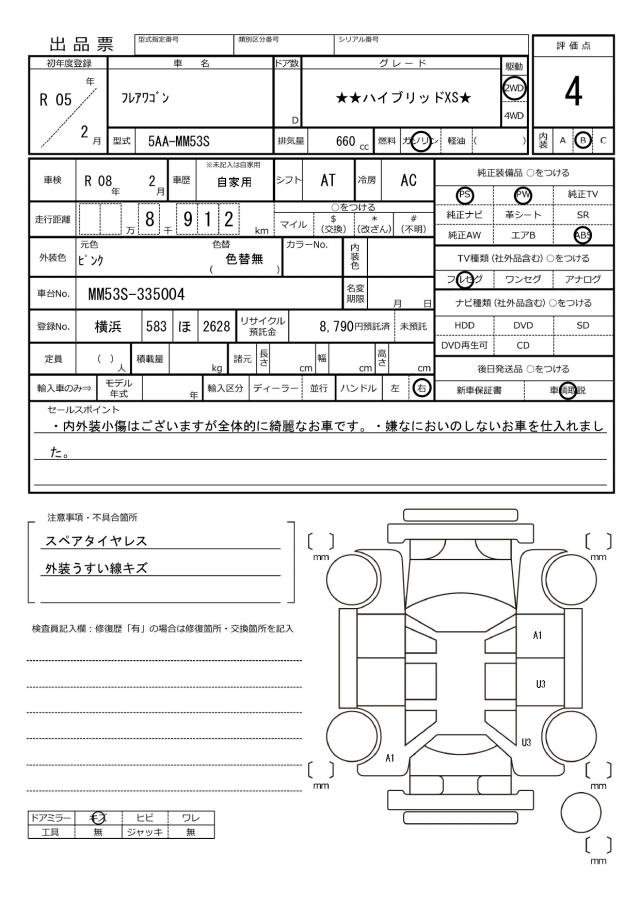 出品票
型式指定番号 類別区分番号 シリアル番号
初年度登録 車名 ドア数 グレード 駆動 評価点
R 05 年 2 月
フレアワゴン D ★★ハイブリッドXS★ 2WD 4WD 4
型式 5AA-MM53S 排気量 660 cc 燃料 ガソリン 軽油 ( ) 内装 A B C
車検 R 08 年 2 月 車歴 ※未記入は自家用 自家用 シフト AT 冷房 AC
走行距離 万 8 千 9 1 2 km ○をつける
マイル $(交換) *(改ざん) #(不明)
外装色 元色 ピンク 色替 色替無 ( ) カラーNo. 内装色
車台No. MM53S-335004 名変期限 月 日
登録No. 横浜 583 ほ 2628 リサイクル預託金 8,790円預託済 未預託
定員 ( )人 積載量 kg 諸元 長さ cm 幅 cm 高さ cm
輸入車のみ⇒ モデル年式 年 輸入区分 ディーラー 並行 ハンドル 左 右
純正装備品 ○をつける
PS PW 純正TV
純正ナビ 革シート SR
純正AW エアB ABS
TV種類(社外品含む)○をつける
フルセグ ワンセグ アナログ
ナビ種類(社外品含む)○をつける
HDD DVD SD
DVD再生可 CD
後日発送品 ○をつける
新車保証書 車輌取説
セールスポイント
・内外装小傷はございますが全体的に綺麗なお車です。・嫌なにおいのしないお車を仕入れまし
た。
注意事項・不具合箇所
スペアタイヤレス
外装うすい線キズ
検査員記入欄：修復歴「有」の場合は修復箇所・交換箇所を記入
ドアミラー キズ ヒビ ワレ
工具 無 ジャッキ 無
〔 〕mm 〔 〕mm
A1
U3
U3
A1
〔 〕mm 〔 〕mm
〔 〕mm